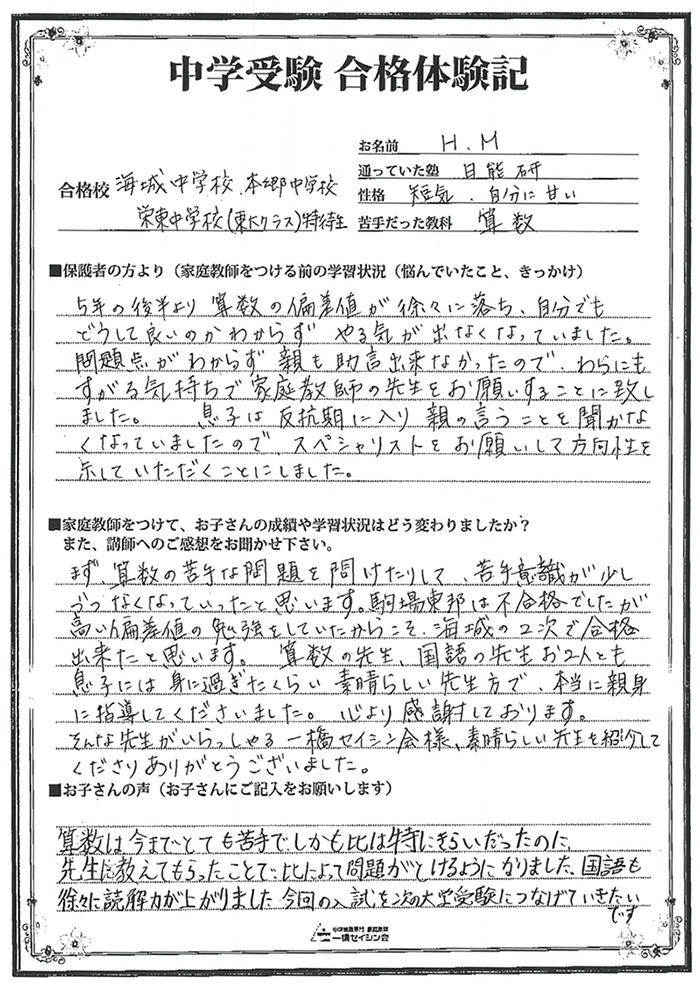 中学受験 合格体験記
お名前 H.M
通っていた塾 日能研
合格校 海城中学校、本郷中学校
性格 短気、自分に甘い
栄東中学校(東大クラス)特待生
苦手だった教科 算数
■保護者の方より（家庭教師をつける前の学習状況（悩んでいたこと、きっかけ）
5年の後半より 算数の偏差値が徐々に落ち、自分でも
どうして良いのかわからず やる気が出なくなっていました。
問題点がわからず 親も助言出来なかったので、わらにも
すがる気持ちで家庭教師の先生をお願いすることに致し
ました。 息子は反抗期に入り 親の言うことを聞かな
くなっていましたので、スペシャリストをお願いして方向性を
示していただくことにしました。
■家庭教師をつけて、お子さんの成績や学習状況はどう変わりましたか？
また、講師へのご感想をお聞かせ下さい。
まず、算数の苦手な問題を 問けたりして、苦手意識が少し
づつなくなっていったと思います。駒場東邦は不合格でしたが
高い偏差値の勉強をしていたからこそ、海城の2次で合格
出来たと思います。 算数の先生、国語の先生お2人とも
息子には身に過ぎたくらい 素晴らしい先生方で、本当に親身
に指導してくださいました。心より感謝しております。
そんな先生がいらっしゃる一橋セイシン会様、素晴らしい先生を紹介して
くださりありがとうございました。
■お子さんの声（お子さんにご記入をお願いします）
算数は今までとても苦手でしかも比は特にきらいだったのに、
先生に教えてもらったことで、比によって問題がとけるようになりました、国語も
徐々に読解力が上がりました 今回の入試を次の大学受験につなげていきたい
です
中学受験専門 家庭教師
一橋セイシン会